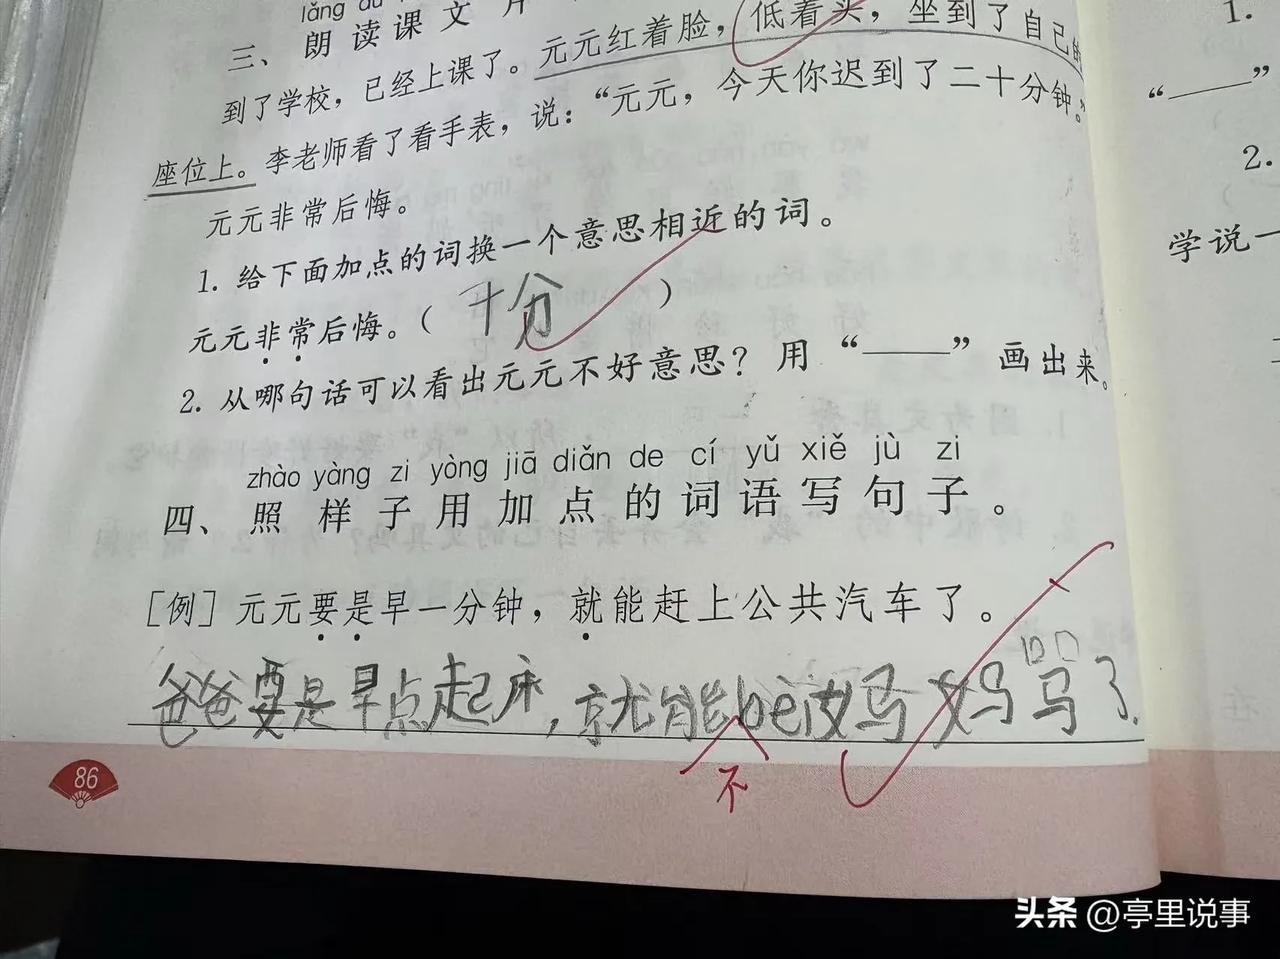 三、朗读课文片
到了学校，已经上课了。元元红着脸，低着头，坐到了自己的
座位上。李老师看了看手表，说：“元元，今天你迟到了二十分钟。”
元元非常后悔。
1. 给下面加点的词换一个意思相近的词。
元元非常后悔。（十分）
2. 从哪句话可以看出元元不好意思？用“——”画出来。
zhào yàng zi yòng jiā diǎn de cí yǔ xiě jù zi
四、照样子用加点的词语写句子。
［例］元元要是早一分钟，就能赶上公共汽车了。
爸爸要是早点起床，就能bèi妈妈骂了.
不
86
1.
“——”
2.
学说一
头条 @亭里说事